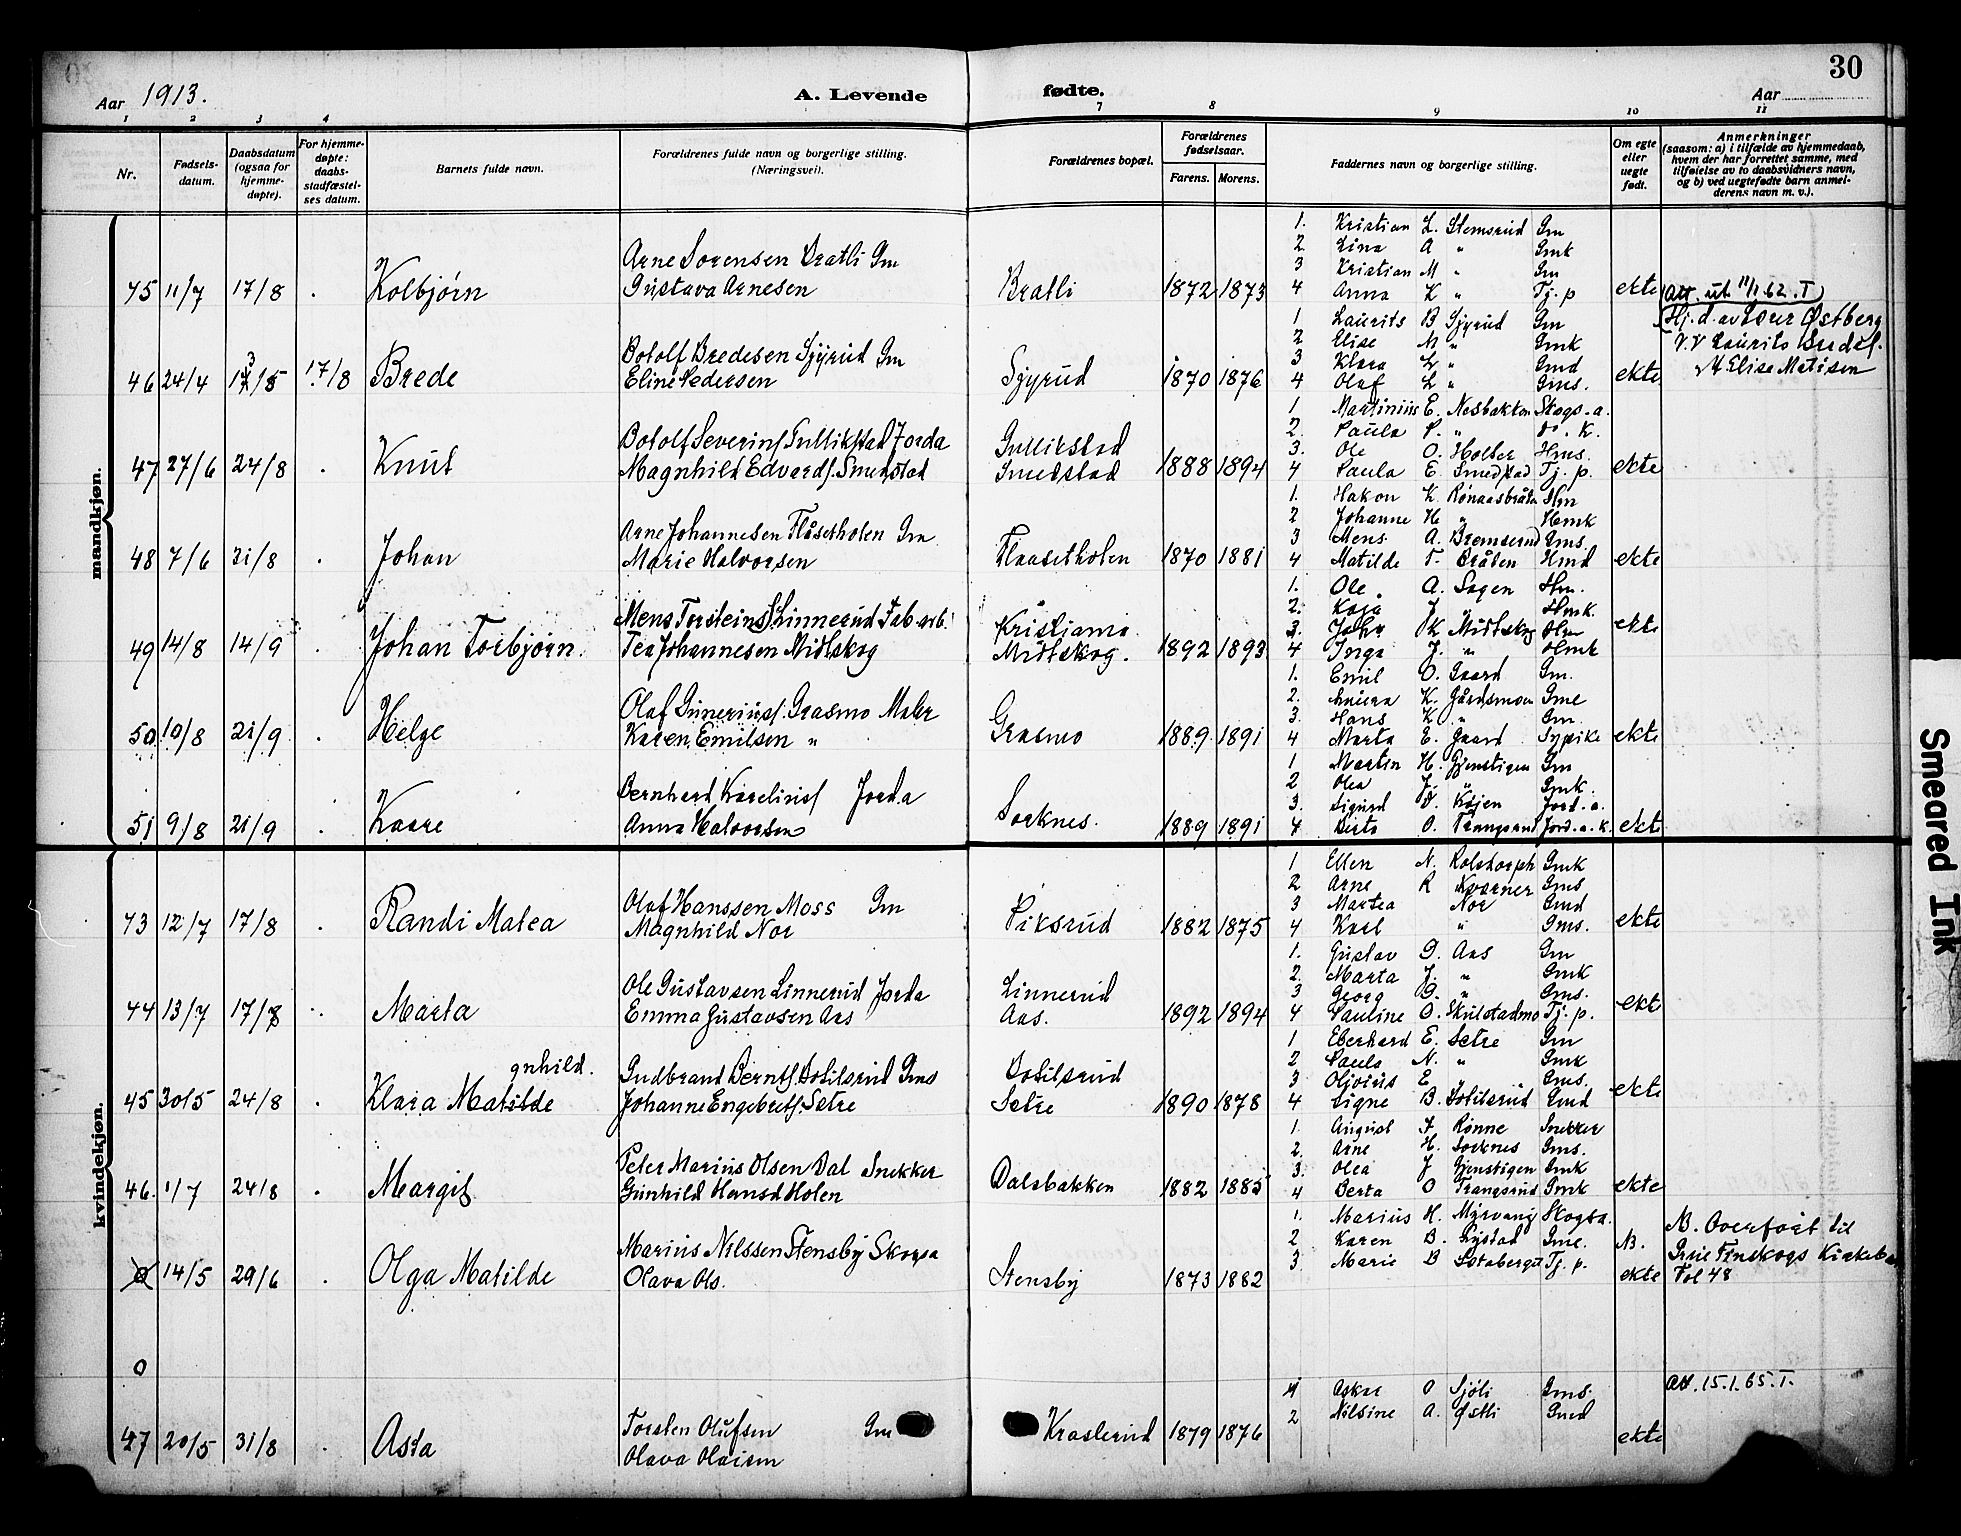 30
Aar 1913.
A. Levende
fødte.
Aar
1 2 3 4 7 8 9 10 11
Nr.
Fødsels-datum.
Daabsdatum (ogsaa for hjemme-døpte).
For hjemme-døpte: daabs-stadfæstel-ses datum.
Barnets fulde navn.
Forældrenes fulde navn og borgerlige stilling. (Næringsvei).
Forældrenes bopæl.
Forældrenes fødselsaar.
Farens. Morens.
Faddernes navn og borgerlige stilling.
Om egte eller uegte født.
Anmerkninger
(saasom: a) i tilfælde av hjemmedaab, hvem der har forrettet samme, med tilføielse av to daabsvidners navn, og b) ved uegtefødte barn anmel-derens navn m. v.).
mandkjøn.
45 11/7 17/8 . Kolbjørn
Arne Sorensen Bratli Gm
Gustava Arnesen
Bratli 1872 1873
1. Kristian L. Stemsrud Gm
2 Lina A " Gmk
3 Kristian M " Gm
4 Anna K " Tj. p
ekte
Att. ut. 11/1 62. T
46 24/4 17/8 Brede
Botolf Bredesen Sjyrud Gm
Eline Pedersen
Sjyrud 1870 1876
1 Laurits B Sjyrud Gm
2 Elise M " Gmk
3 Klara L " Gmd
4 Olaf L " Gms.
ekte
Hj. d. av Lærer Østberg
V. V Laurits Bredes.
Elise Matisen
47 27/6 24/8 . Knut
Botolf Severins Gullikstad Jorda
Magnhild Edvards. Smedstad
Gullikstad
Smedstad 1888 1894
1 Martinius E. Nesbakken Skogs-a.
2. Paula P. " K.
3. Ole O. Holber Hms.
4 Paula E. Smedstad Tj. p.
ekte
48 7/6 21/8 . Johan
Arne Johannesen Flåsetholen Gm
Marie Halvorsen
Flaasetholen 1870 1881
1. Hakon K. Rønaasbråten Hm
2 Johanne H " Hmk
3 Mens A. Bremserud Gms.
4 Matilde T. Bråten Hmd
ekte
49 14/8 14/9 . Johan Torbjørn.
Mens Torsteins Linnerud Fab. arb.
Tea Johannesen Midtskog
Kristiania
Midtskog. 1892 1893
1. Ole A. Sagen Hm.
2. Kaja J. Hmk.
3. John K Midtskog Hm
4 Inga J. " Hmk
ekte
50 10/8 21/9 . Helge
Olaf Gunerius. Grasmo Maler
Karen Emilsen "
Grasmo 1889 1891
1. Emil O. Gaard Gm.
2. K. Gårdsmoen Gme
3. Hans K " Gm
4 Marta E. Gaard Sypike
ekte
51 9/8 21/9 . Kaare
Bernhard Karelius Jorda
Anna Halvorsen
Sorknes. 1889 1891
1 Martin H. Gjenstigen Gm
2 Olea J. " Gmk.
3. Sigurd D. Kojen Jord.-a.
4 Berta O. Trangsrud Jord. a. k.
ekte
kvindekjøn.
43 12/7 17/8 . Randi Matea
Olaf Hanssen Moss Gm
Magnhild Nor
Piksrud 1882 1875
1. Ellen N. Rolstorph Gmk
2 Arne R Kværner Gms
3 Martea Nor Gmd
4 Karl " Gms.
ekte
44 13/7 17/8 . Marta
Ole Gustavsen Linnerud Jorda
Emma Gustavsen Aas
Linnerud
Aas. 1892 1894
1. Gustav G. Aas Gm
2. Marta J. " Gmk
3 Georg G. " Gms.
4 Pauline O. Skulstadmo Tj. p.
ekte
gnhild.
45 30/5 24/8 . Klara Matilde
Gudbrand Bernts. Botilsrud Gms
Johanne Engebrets. Setre
Botilsrud
Setre 1890 1878
1 Eberhard E. Setre Gm
2 Paula N. " Gmk
3 Olivius E " Gms.
4 Signe B. Botilsrud Gmd
ekte
46. 1/7 24/8 . Margit
Peter Marius Olsen Dal Snekker
Gunhild Hansd Holen
Dalsbakken 1882 1885
1. August A Rønne Snekker
2. Arne H. Sorknes Gms.
3. Olea J Gjenstigen Gmk
4 Berta O Trangsrud Gmk
ekte
14/5 29/6 . Olga Matilde
Marius Nilssen Stensby Skogsa
Olava Ols.
Stensby 1873 1882
1. Marius H. Myrvang Skogta.
2 Karen B. Rystad Gme.
3. Marie B Tj. p.
N. ekte
N. Overført til
Grue Finskogs Kirkebo
Fol 48
0
47 20/5 31/8 . Asta
Torsten Olufsen Gm
Olava Olausen
Kroslerud 1879 1876
1 Askar O Sjøli Gms.
2 Nilsine A. Østli Gmd
ekte
Att. 15.1.65.T.
Smeared Ink